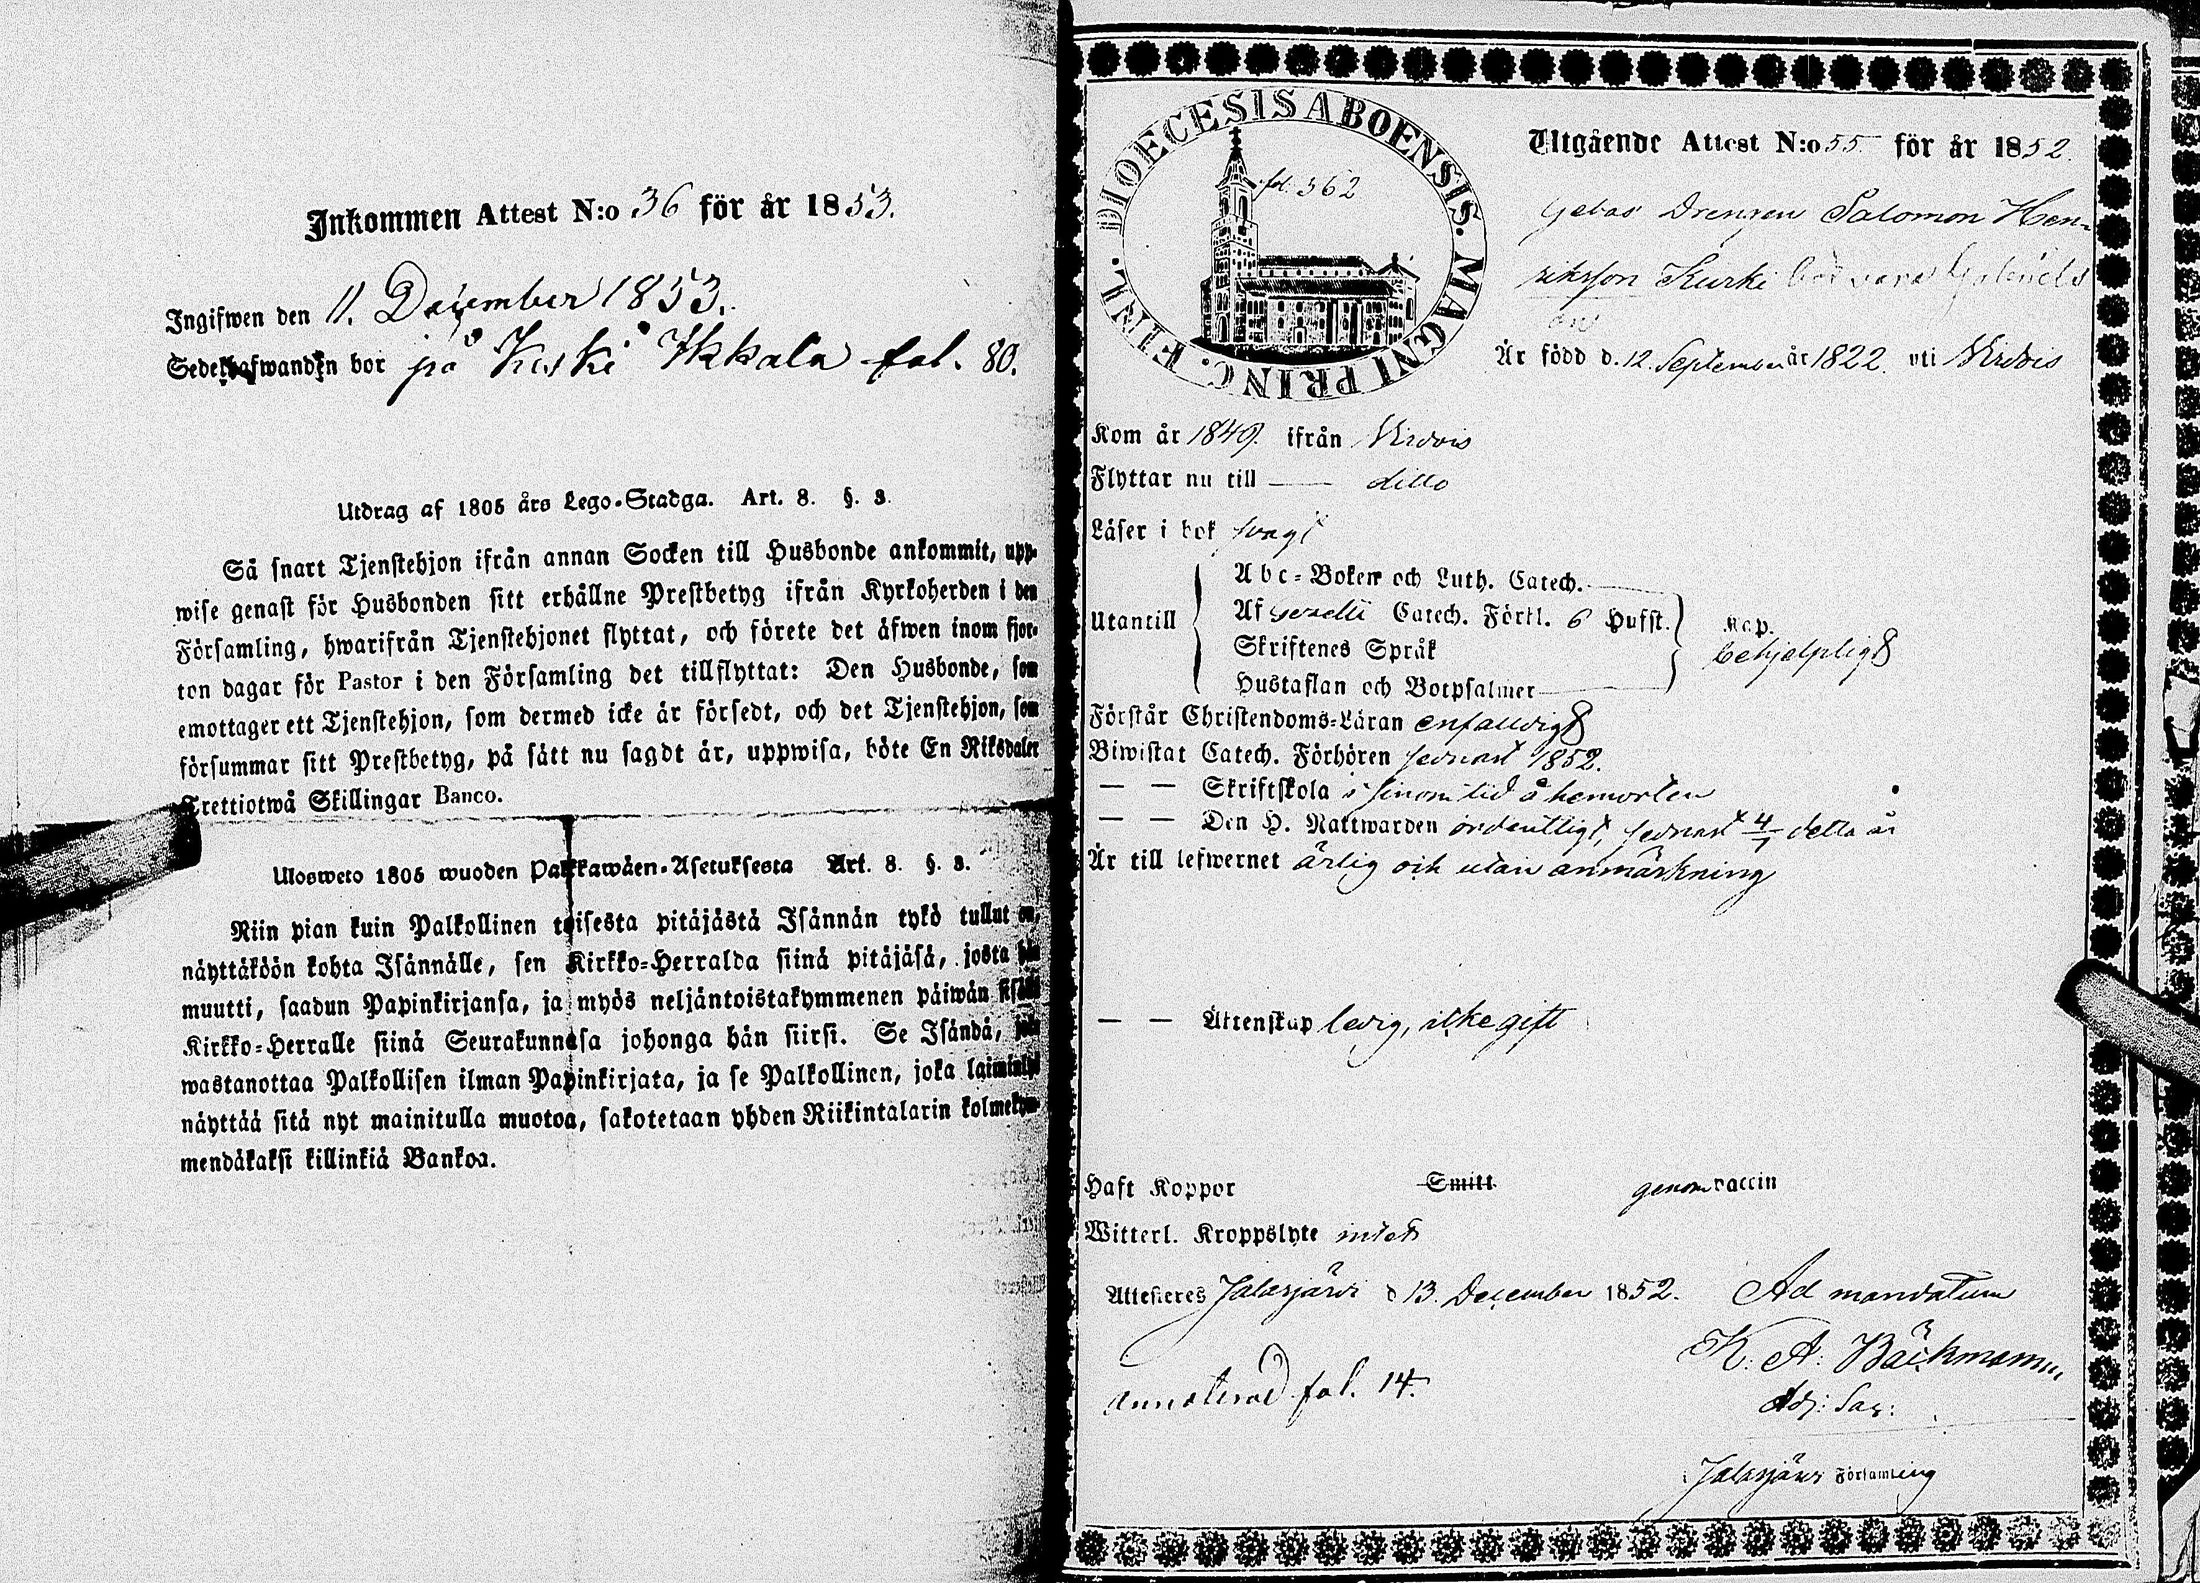 Inkommen Attest N:o 36 för år 1853.
Ingifwen den 11. December 1853.
Sedelhafwanden bor på Keski Ikkala fol. 80.
Utdrag af 1805 års Lego-Stadga. Art. 8. §. 3.
Så snart Tjenstehjon ifrån annan Socken till Husbonde ankommit, upp-
wise genast för Husbonden sitt erhållne Prestbetyg ifrån Kyrkoherden i den
Församling, hwarifrån Tjenstehjonet flyttat, och förete det äfwen inom fjor-
ton dagar för Pastor i den Församling det tillflyttat: Den Husbonde, som
emottager ett Tjenstehjon, som dermed icke är försedt, och det Tjenstehjon, som
försummar sitt Prestbetyg, på sätt nu sagdt är, uppwisa, böte En Riksdaler
Trettiotwå Skillingar Banco.
Ulosweto 1805 wuoden Palkkawäen-Asetuksesta Art. 8. §. 3.
Niin pian kuin Palkollinen toisesta pitäjästä Isännän tykö tullut on,
näyttäköön kohta Isännälle, sen Kirkko-Herralda siinä pitäjäsä, josta hän
muutti, saadun Papinkirjansa, ja myös neljäntoistakymmenen päiwän sisällä
Kirkko-Herralle siinä Seurakunnasa johonga hän siirsi. Se Isändä, joka
wastanottaa Palkollisen ilman Papinkirjata, ja se Palkollinen, joka laiminlyö
näyttää sitä nyt mainitulla muotoa, sakotetaan yhden Riikintalarin kolmekym-
mendäkaksi killinkiä Bankoa.
DIOECESIS ABOENSIS. MAGNI PRINC. FINL.
fol. 362
Utgående Attest N:o 55 för år 1852.
Drengen Salomon Hen-
riksson Kurki
Är född d. 12. September år 1822. uti Virdois
Kom år 1849. ifrån Virdois
Flyttar nu till — ditto
Läser i bok svagt
Utantill
Abc-Boken och Luth. Catech.
Af Gezelii Catech. Förkl. 6 Hufst. Kap.
Skriftenes Språk
behjelpligt
Hustaflan och Botpsalmer
Förstår Christendoms-Läran enfaldigt
Biwistat Catech. Förhören sednast 1852.
— — Skriftskola i sinom tid å hemorten
— — Den H. Nattwarden ordentligt, sednast 4/7 detta år
Är till lefwernet ärlig och utan anmärkning
— — Äktenskap ledig, icke gift
Haft Koppor Smitt genom vaccin
Witterl. Kroppslyte intet
Attesteres Jalasjärvi d 13. December 1852. Ad mandatum
K. A. Bäckmann,
Adj: Sac:
annoterad fol. 14.
Jalasjärvi Församling